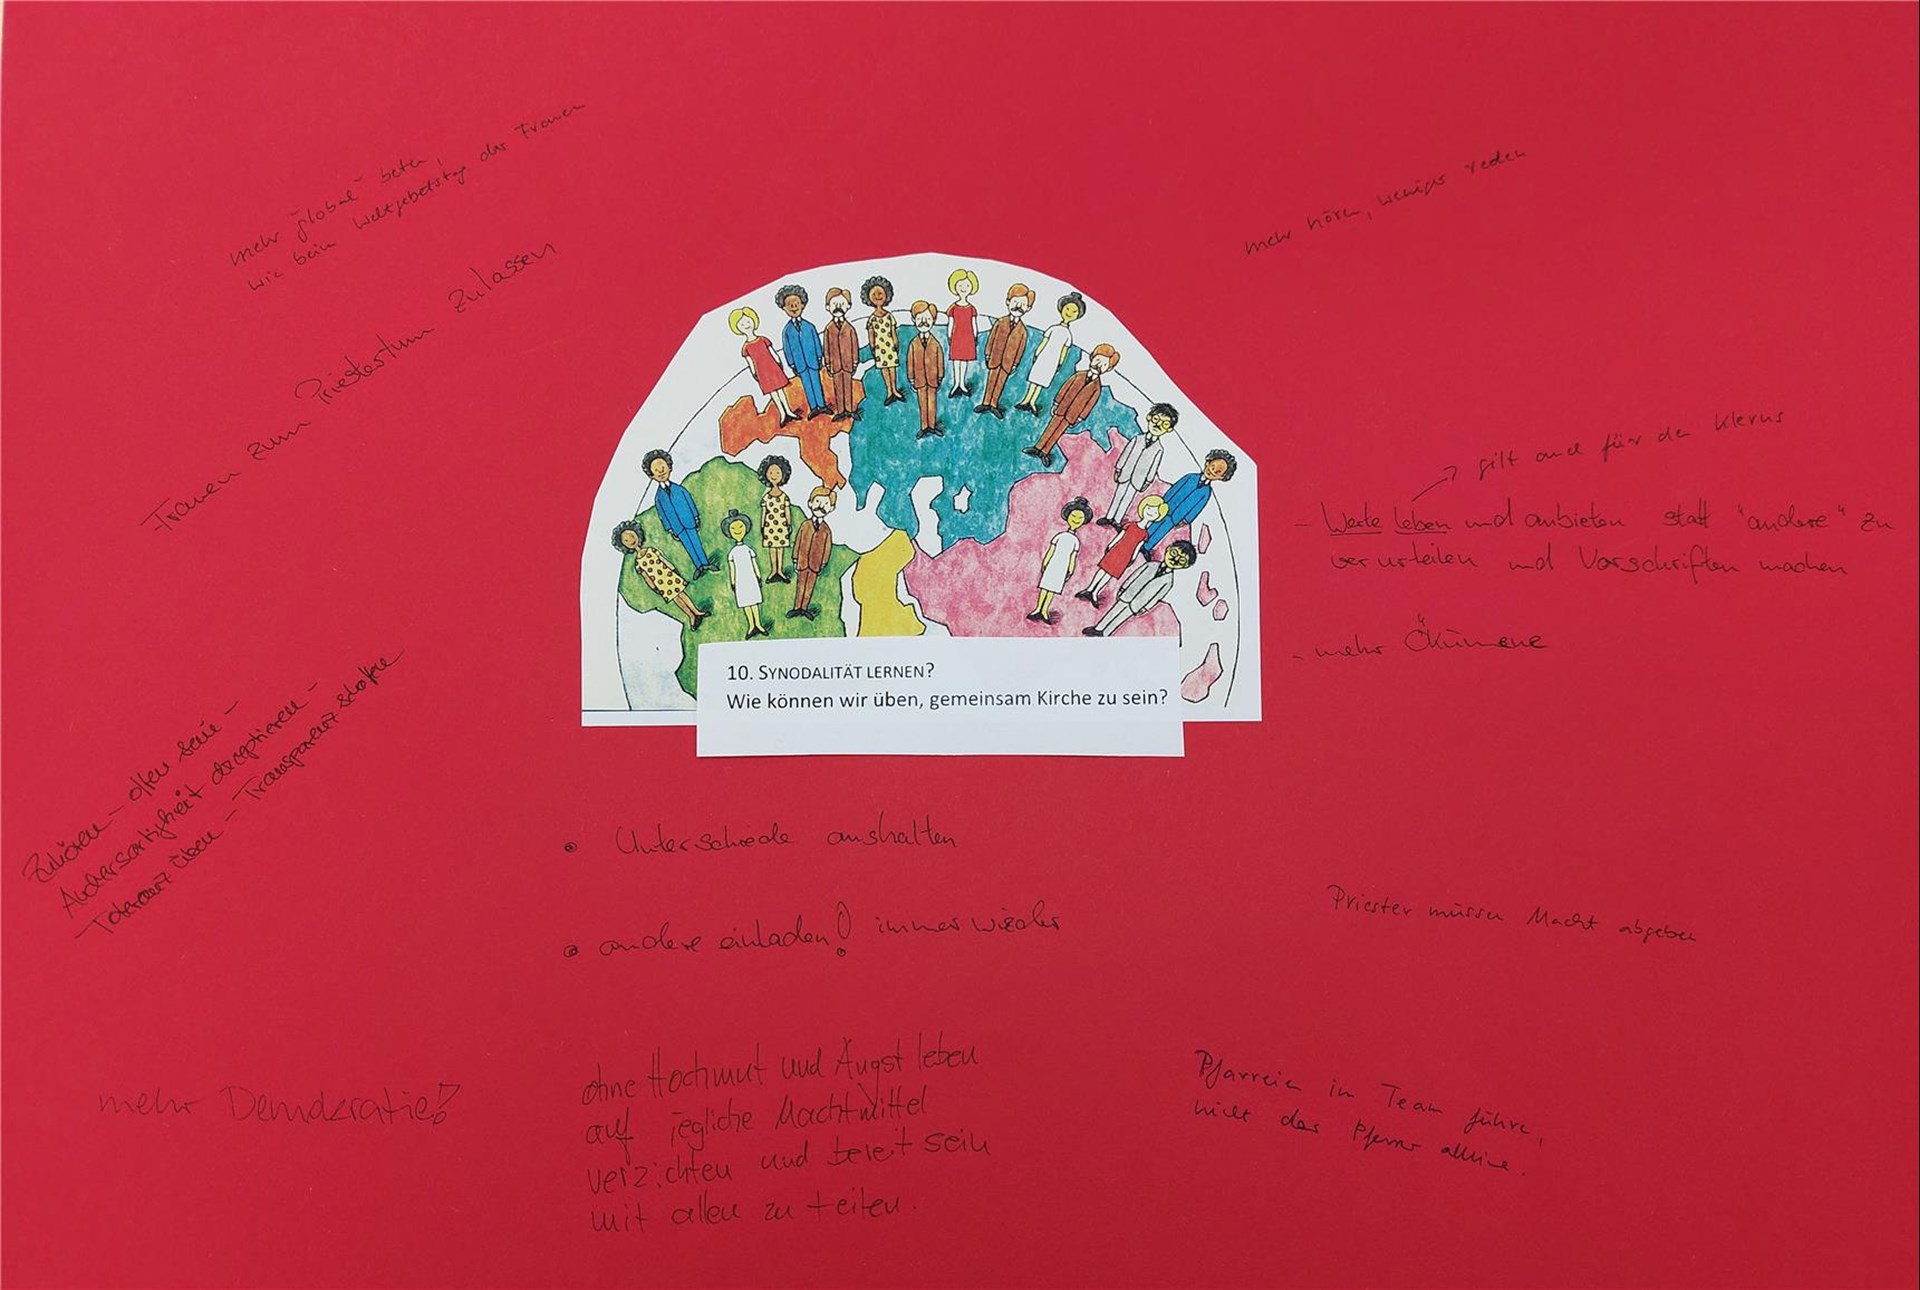 mehr "global" beten,
wie beim Weltgebetstag der Frauen
Frauen zum Priestertum zulassen
mehr hören, weniger reden
gilt auch für den Klerus
- Werte leben und anbieten statt "andere" zu
verurteilen und Vorschriften machen
- mehr Ökumene
10. SYNODALITÄT LERNEN?
Wie können wir üben, gemeinsam Kirche zu sein?
Zuhören - offen sein -
Andersartigkeit akzeptieren -
Toleranz üben - Transparenz schaffen
• Unterschiede aushalten
• andere einladen! immer wieder
Priester müssen Macht abgeben
mehr Demokratie!
ohne Hochmut und Angst leben
auf jegliche Machtmittel
verzichten und bereit sein
mit allen zu teilen.
Pfarreien im Team führen,
nicht der Pfarrer alleine.